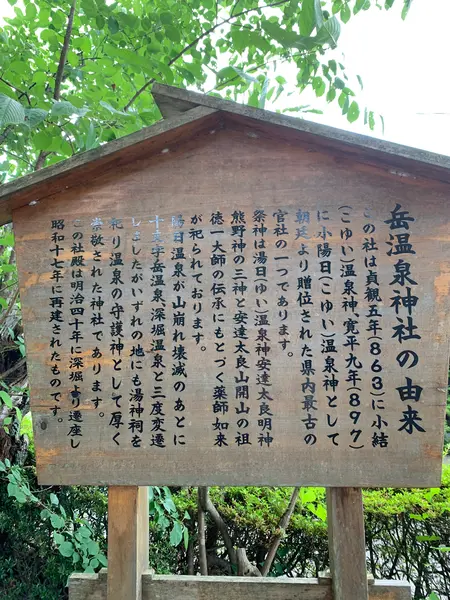 岳温泉神社の由来
この社は貞観五年(863)に小結
(こゆい)温泉神、寛平九年(897)
に小陽日(こゆい)温泉神として
朝廷より贈位された県内最古の
官社の一つであります。
祭神は湯日(ゆい)温泉神安達太良明神
熊野神の三神と安達太良山開山の祖
徳一大師の伝承にもとづく薬師如来
が祀られております。
湯日温泉が山崩れ壊滅のあとに
十文字岳温泉、深堀温泉と三度変遷
しましたがいずれの地にも湯神祠を
祀り温泉の守護神として厚く
崇敬された神社であります。
この社殿は明治四十年に深堀より遷座し
昭和十七年に再建されたものです。